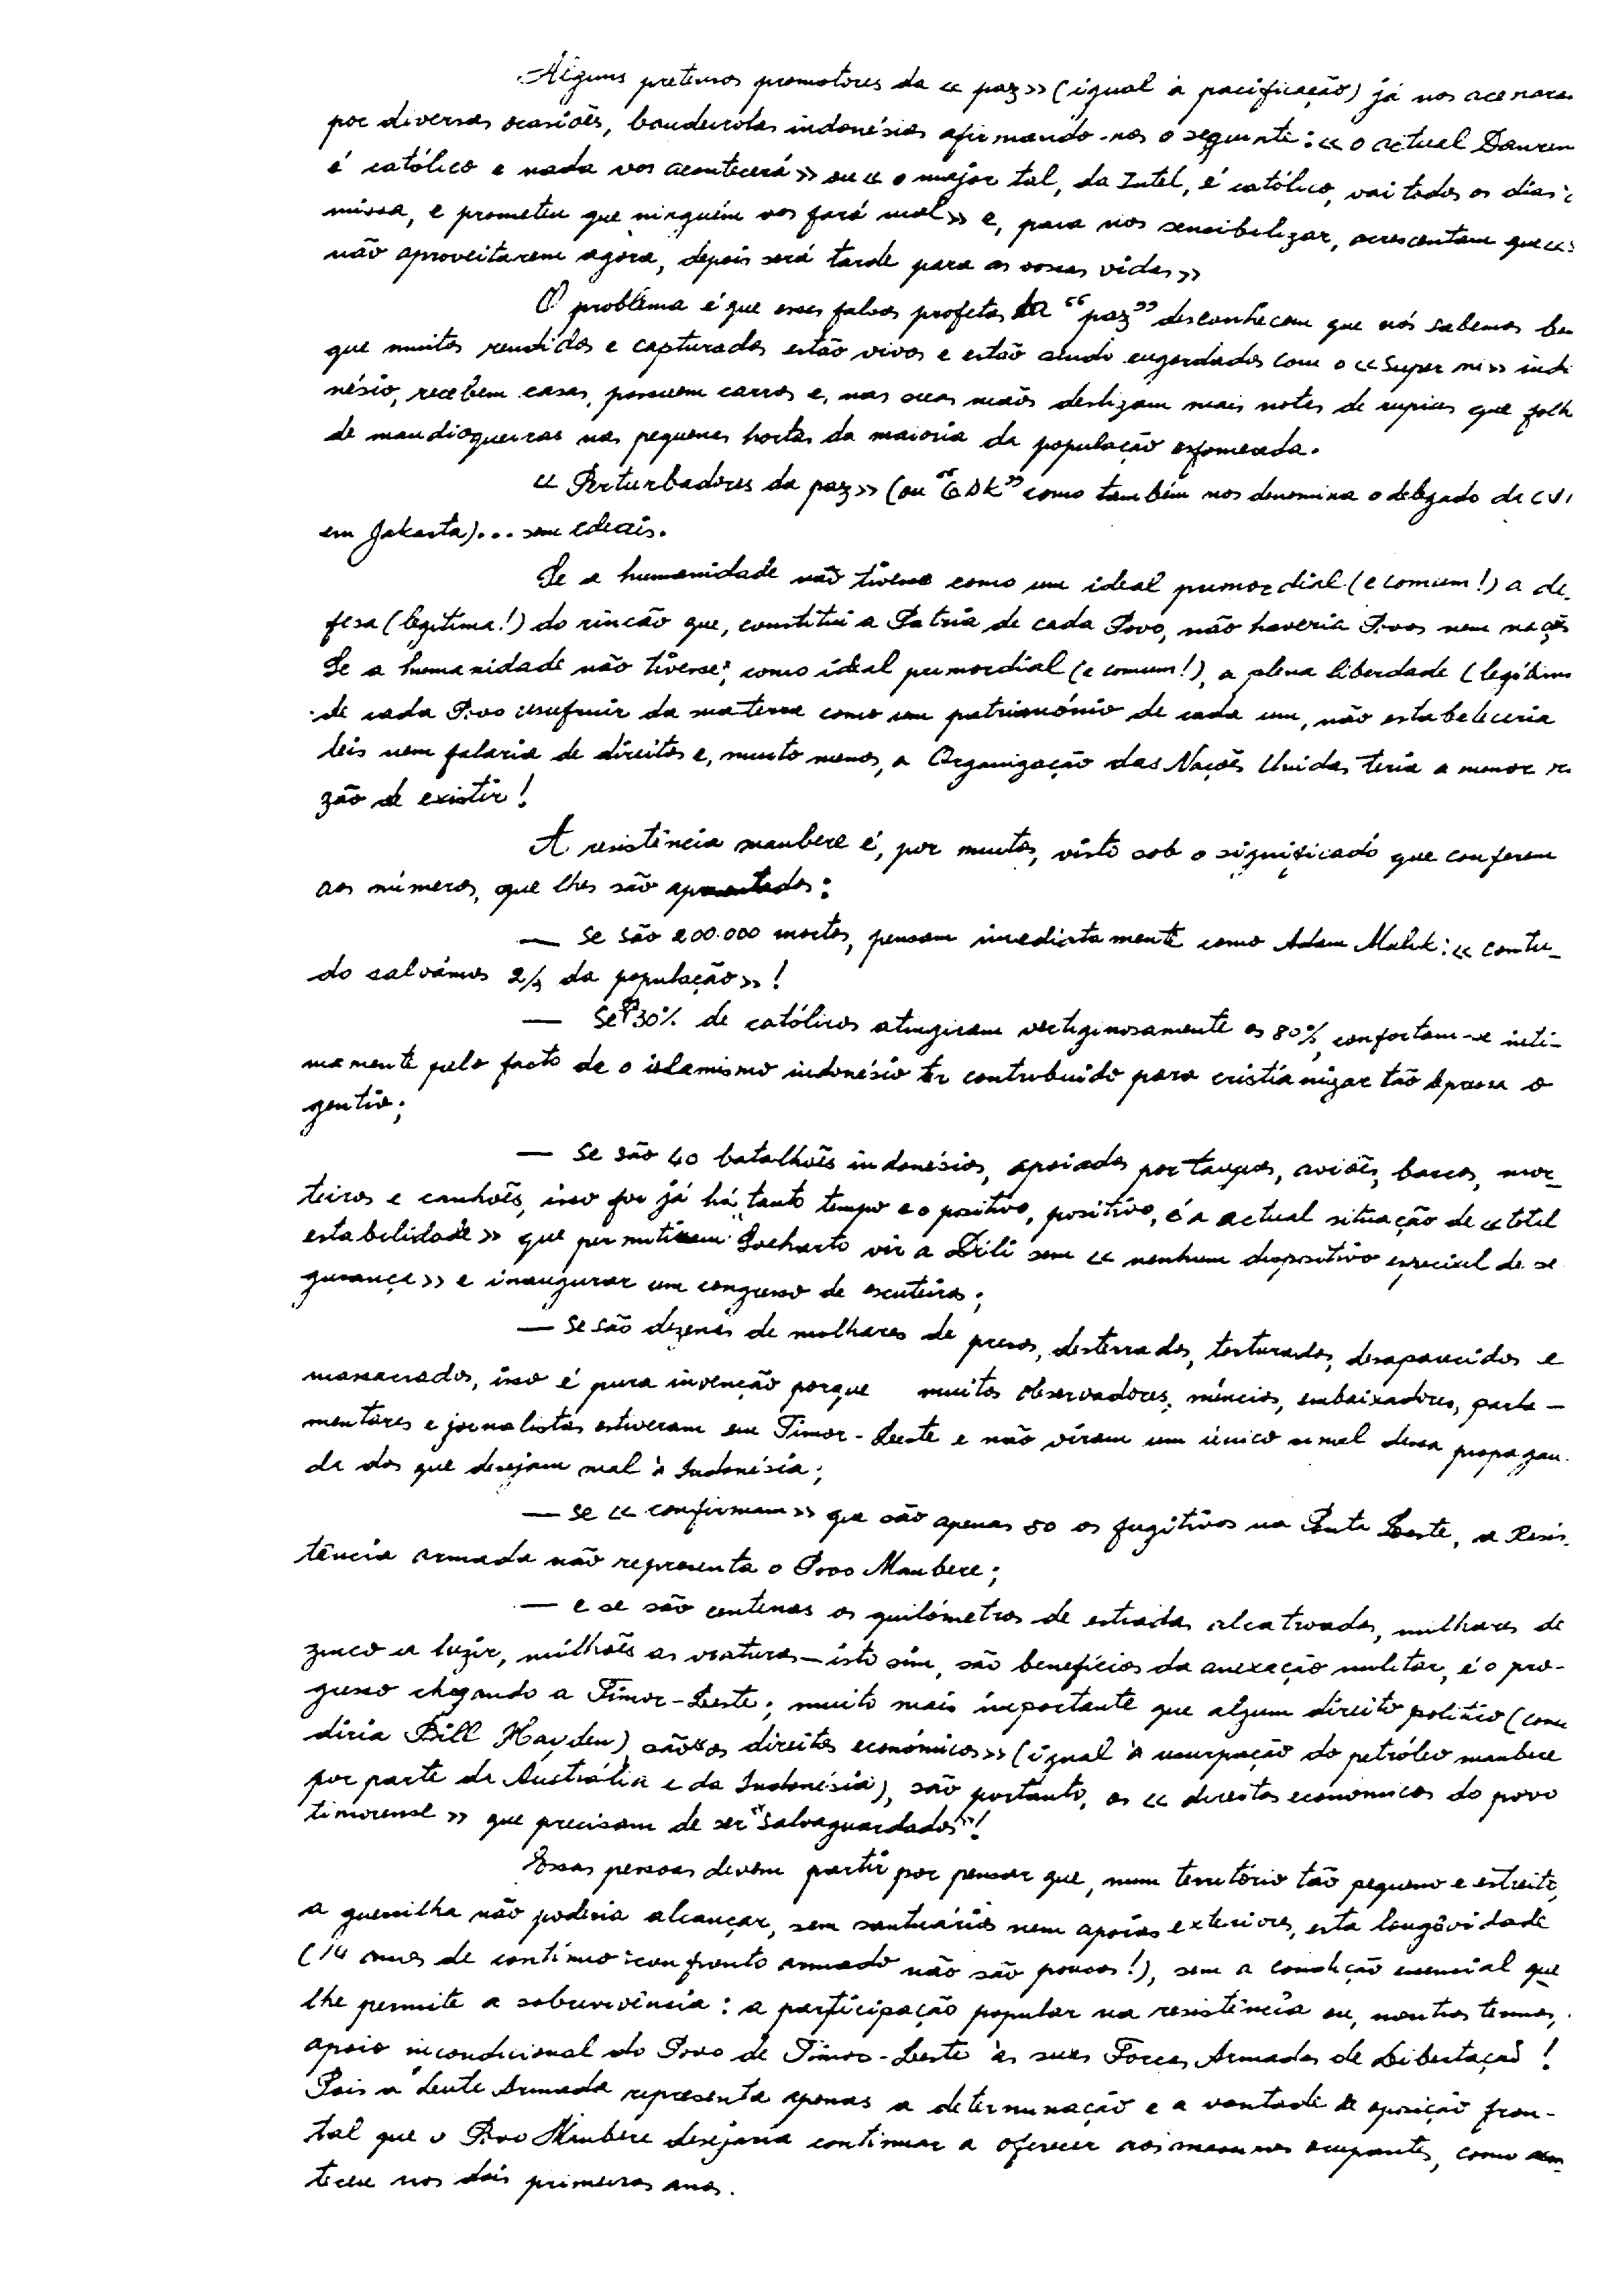 Alguns pretensos promotores da «paz» (igual à pacificação) já nos acenaram
por diversas ocasiões, bandeirolas indonésias afirmando-nos o seguinte: «o actual Danrem
é católico e nada vos acontecerá» ou «o major tal, da Intel, é católico, vai todos os dias à
missa, e prometeu que ninguém vos fará mal» e, para nos sensibilizar, acrescentam que «s
não aproveitarem agora, depois será tarde para as vossas vidas»
O problema é que esses falsos profetas da “paz” desconhecem que nós sabemos bem
que muitos rendidos e capturados estão vivos e estão sendo engordados com o «Supermi» indo
nésio, recebem casas, possuem carros e, nas suas mãos deslizam mais notas de rupias que folh
de mandioqueiras nas pequenas hortas da maioria da população esfomeada.
«Perturbadores da paz» (ou “GDK” como também nos denomina o delegado da CVI
em Jakarta)... sem ideais.
Se a humanidade não tivesse como um ideal primordial (e comum!) a de-
fesa (legítima!) do rincão que, constitui a Pátria de cada Povo, não haveria Povos nem nações
Se a humanidade não tivesse, como ideal primordial (e comum!), a plena liberdade (legítima
de cada Povo usufruir da sua terra como um património de cada um, não estabeleceria
leis nem falaria de direitos e, muito menos, a Organização das Nações Unidas teria a menor ra
zão de existir!
A resistência maubere é, por muitos, visto sob o significado que conferem
aos números, que lhes são apresentados:
— Se são 200.000 mortos, pensam imediatamente como Adam Malik: «contu-
do salvámos 2/3 da população»!
— Se 30% de católicos atingiram vertiginosamente os 80%, confortam-se inti-
mamente pelo facto de o islamismo indonésio ter contribuido para cristianizar tão depressa o
gentio;
— Se são 40 batalhões indonésios, apoiados por tanques, aviões, barcos, mor-
teiros e canhões, isso foi já há tanto tempo e o positivo, positivo, é a actual situação de «total
estabilidade» que permitiram Soeharto vir a Dili sem «nenhum dispositivo especial de se
gurança» e inaugurar um congresso de escuteiros;
— Se são dezenas de milhares de presos, desterrados, torturados, desaparecidos e
massacrados, isso é pura invenção porque muitos observadores, núncios, embaixadores, parla-
mentares e jornalistas estiveram em Timor-Leste e não viram um único sinal dessa propagan-
da dos que desejam mal à Indonésia;
— Se «confirmam» que são apenas 80 os fugitivos na Ponta Leste, a Resis-
tência armada não representa o Povo Maubere;
— e se são centenas os quilómetros de estradas alcatroadas, milhares de
zinco a luzir, milhões as viaturas — isto sim, são benefícios da anexação militar, é o pro-
gresso chegando a Timor-Leste; muito mais importante que algum direito político (como
diria Bill Hayden) são «os direitos económicos» (igual à usurpação do petróleo maubere
por parte da Austrália e da Indonésia), são portanto, os «direitos economicos do povo
timorense» que precisam de ser “salvaguardados”!
Essas pessoas devem partir por pensar que, num território tão pequeno e estreito,
a guerrilha não poderia alcançar, sem santuários nem apoios exteriores, esta longevidade
(14 anos de contínuo confronto armado não são poucos!), sem a condição essencial que
lhe permite a sobrevivência: a participação popular na resistência ou, noutros termos,
apoio incondicional do Povo de Timor-Leste às suas Forças Armadas de Libertação!
Pois a Frente Armada representa apenas a determinação e a vontade de oposição fron-
tal que o Povo Maubere desejaria continuar a oferecer aos mesmos ocupantes, como acon-
teceu nos dois primeiros anos.